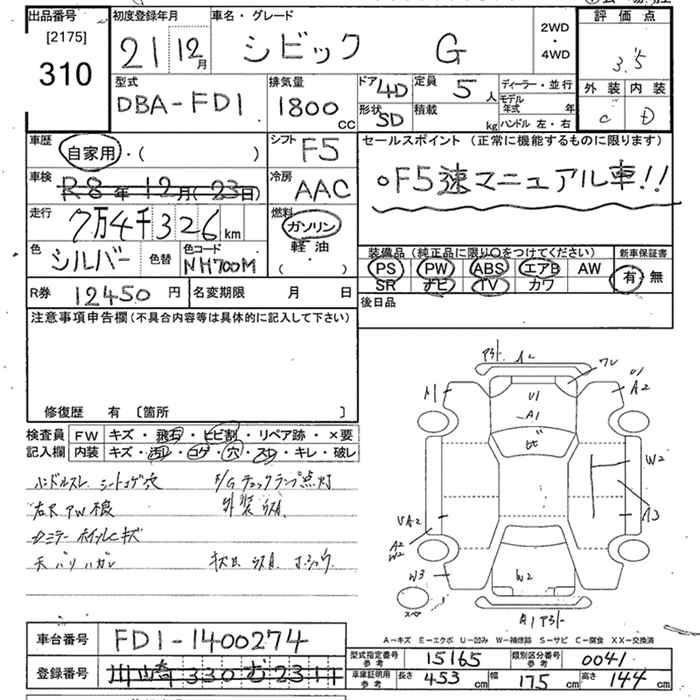 出品番号
[2175]
310
初度登録年月
21 12月
車名・グレード
シビック G
2WD
・
4WD
評価点
3.5
外装 内装
C D
型式
DBA-FD1
排気量
1800
cc
ドア 4D
形状 SD
定員 5 人
積載 kg
ディーラー・並行
モデル年式 年
ハンドル 左・右
車歴
自家用・( )
シフト F5
セールスポイント(正常に機能するものに限ります)
○F5速マニュアル車!!
車検
R8年12月(23日)
冷房
AAC
走行
7万4千326km
燃料
ガソリン
軽油
( )
色 シルバー
色替
色コード
NH700M
装備品(純正品に限り○をつけてください)
新車保証書
PS PW ABS エアB AW
SR ナビ TV カワ
有・無
R券 12450円
名変期限 月 日
後日品
注意事項申告欄(不具合内容等は具体的に記入して下さい)
修復歴 有〔箇所 〕
検査員
記入欄
FW キズ・飛石・ヒビ割・リペア跡・×要
内装 キズ・汚レ・コゲ・穴・スレ・キレ・破レ
ハンドルスレ シートコゲ穴
E/Gチェックランプ点灯
右R PW不良
ドアミラー ホイールキズ
天バリハガレ
M
A2
U1
A1
W2
A3
UA2
A2
W2
W3
W2
スペアー
A1
A-キズ E-エクボ U-凹み W-補修跡 S-サビ C-腐食 XX-交換済
車台番号
FD1-1400274
登録番号
川崎 330 む 2311
型式指定番号
参考
15165
類別区分番号
参考
0041
車庫証明用
参考
長さ 453cm 幅 175cm 高さ 144cm